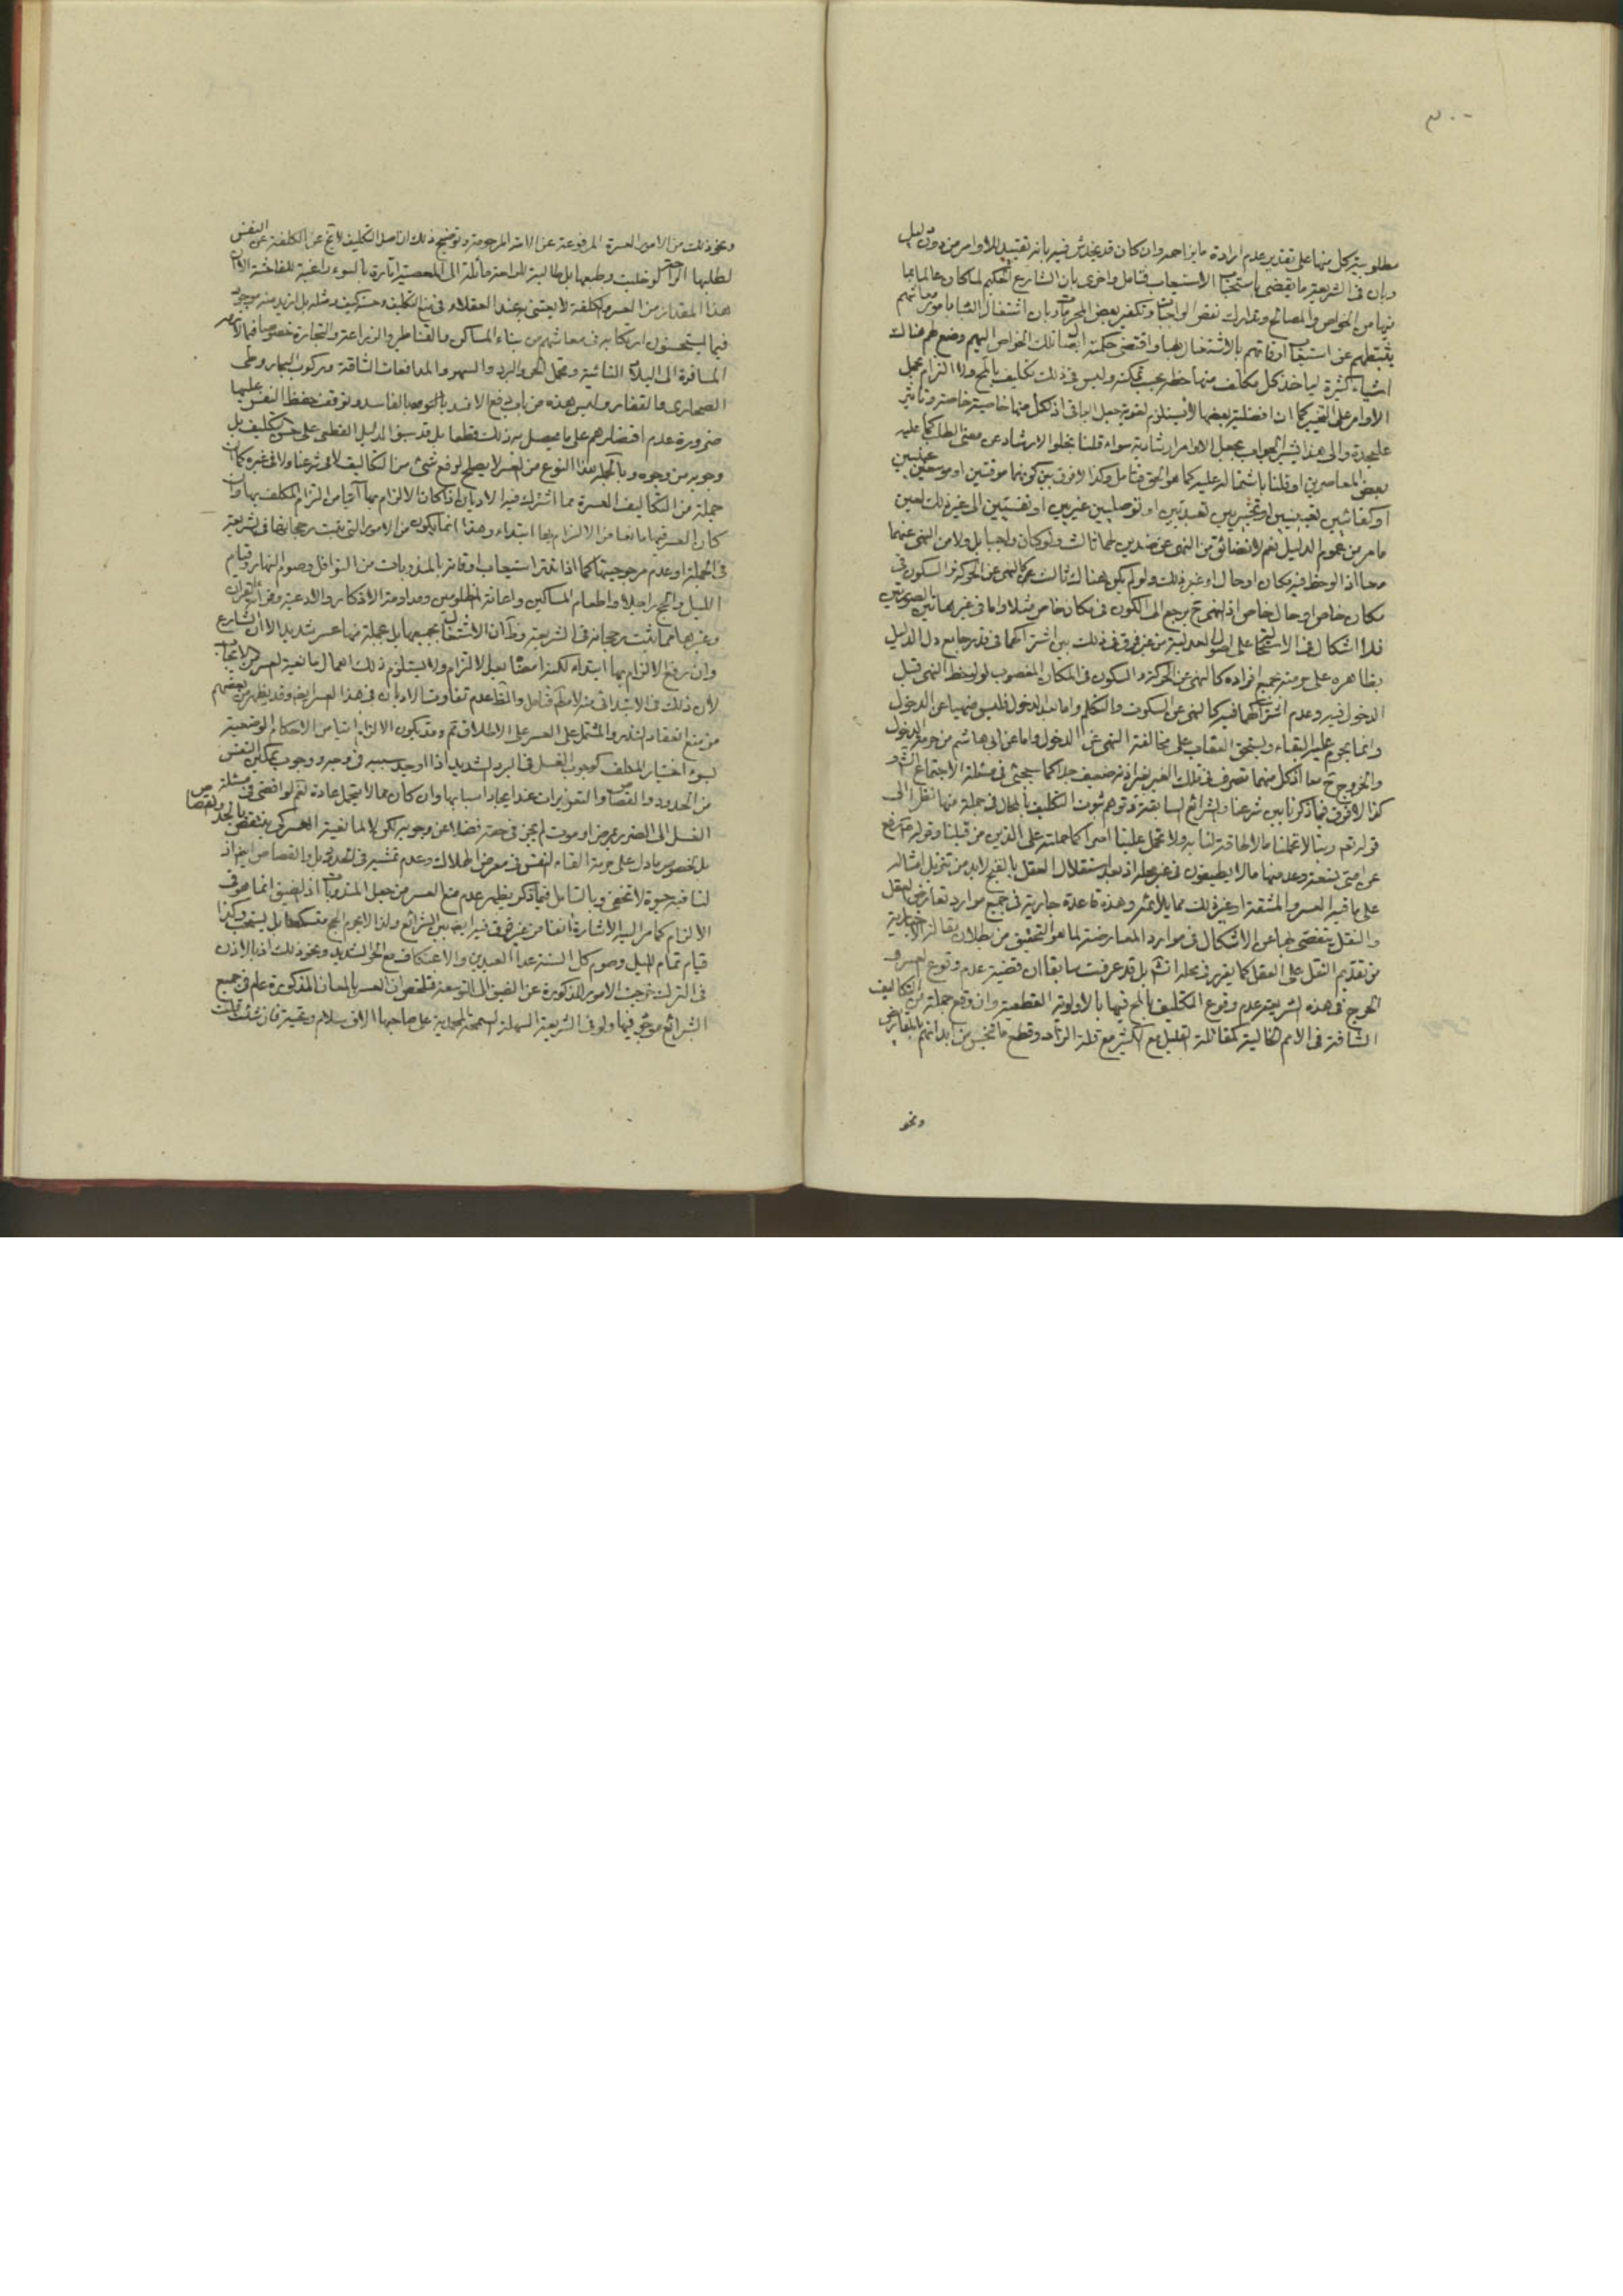 ٣٠٠
مطلوبية كل منها على تقدير عدم ارادة ما يزاحمه وان كان قد يخدش فيه بانه تقييد للاوامر من دون دليل
وبان فى الشريعة ما يقضى باستحباب الاستيعاب فتامل واخرى بان الشارع الحكيم لما كان عالما بما
فيها من الخواص والمصالح وتدارك نقص الواجبات وتكفير بعض المحرمات وبان اشتغال العباد بامور معاشهم
يثبطهم عن استيعاب اوقاتهم بالاشتغال بها واقتضى حكمته ايصال تلك الخواص اليهم وضع لهم هنالك
اشياء كثيرة لياخذ كل مكلف منها حظه بحسب تمكنه وليس فى ذلك تكليف بالمح ولا التزام بحمل
الاوامر على التخيير كما ان افضلية بعضها لا يستلزم لغوية جعل الباقى اذ لكل منها خاصية خاصة وتاثير
عليحدة والى هذا يشير الجواب بجعل الاوامر ارشادية سواء قلنا بخلو الارشاد عن معنى الطلب كما عليه
بعض المعاصرين او قلنا باشتماله عليه كما هو الحق فتامل وكذا لا فرق بين كونهما موقتين او موسعين عينيين
او كفائيين تعيينيين او تخييريين تعبديين او توصليين غيريين او نفسيين الى غير ذلك لعين
ما مر من عموم الدليل نعم لا تضائق من النهى عن ضدين لهما ثالث ولو كان واجبا بل ولا من النهى عنهما
معا اذا لوحظ فيه مكان او حال او غير ذلك ولو لم يكن هناك ثالث كالنهى عن الحركة والسكون فى
مكان خاص او حال خاص اذ النهى ح يرجع الى الكون فى مكان خاص مثلا واما فى غير هاتين الصورتين
فلا اشكال فى الاستحالة على اصول العدلية من غير فرق فى ذلك بين اشتراكهما فى قدر جامع دل الدليل
بظاهره على حرمته بجميع افراده كالنهى عن الحركة والسكون فى المكان المغصوب لو لوحظ النهى قبل
الدخول فيه وعدم اشتراكهما فيه كالنهى عن السكوت والتكلم واما بعد الدخول فليس منهيا عن الدخول
وانما يحرم عليه البقاء ويستحق العقاب على مخالفة النهى عن الدخول واما عن ابى هاشم من حرمة الدخول
والخروج ح معا اذ كل منهما تصرف فى ملك الغير بغير اذنه ضعيف جدا كما سيجئ فى مسئلة الاجتماع
كذا لا فرق فيما ذكرنا بين شرعنا والشرائع السابقة وتوهم ثبوت التكليف بالمحال فى جملة منها نظرا الى
قوله تعم ربنا لا تحملنا ما لا طاقة لنا به ولا تحمل علينا اصرا كما حملته على الذين من قبلنا وقوله ص رفع
عن امتى تسعة وعد منها ما لا يطيقون فى غير محله اذ بعد استقلال العقل بالقبح لا بد من تنزيل امثاله
على ما فيه العسر والمشقة او غير ذلك مما يلائمه وهذه قاعدة جارية فى جميع موارد تعارض العقل
والنقل يتفصى بها عن الاشكال فى موارد المعارضة لما هو التحقيق من بطلان مقالة الاخبارية
من تقديم النقل على العقل كما يقرر فى محله انش بل قد عرفت سابقا ان قضية عدم وقوع العسر و
الحرج فى هذه الشريعة عدم وقوع التكليف بالمح فيها بالاولوية القطعية وان وقع جملة من التكاليف
الشاقة فى الامم الخالية كمقاتلة القليل مع الكثير مع قلة الزاد وقطع ما تنجس من ابدانهم بالمقاريض
ونحو
ونحو ذلك من الامور العسرة المرفوعة عن الامة المرحومة وتوضيح ذلك ان اصل التكليف لا تخ عن الكلفة على النفس
لطلبها الراحة لو خليت وطبعها بل طالبية للراحة مائلة الى المعصية امارة بالسوء راغبة للفاحشة الا ان
هذا المقدار من العسر والكلفة لا يعتنى به عند العقلاء فى منع التكليف وحسنه كيف ومثله بل ازيد منه موجود
فيما يستحسنون ارتكابه فى معاشهم من بناء المساكن والقناطر والزراعة والتجارة خصوصا فيما لا
المسافرة الى البلاد النائية وتحمل الحر والبرد والسهو والمدافعات الشاقة وركوب البحار وطى
الصحارى والقفار وليس هذه من باب دفع الافسد بالفاسد وتوقف حفظ النفس عليها
ضرورة عدم اقتصارهم على ما يحصل به ذلك قطعا بل قد سبق الدليل القطعى على حسن التكليف بل
وجوبه من وجوه وبالجملة هذا النوع من العسر لا يصلح لرفع شئ من التكاليف لا فى شرعنا ولا فى غيره كما ان
جملة من التكاليف العسرة مما اشترك فيه الاديان اذا كان الالزام بها آتيا من التزام المكلف بها وان
كان العسر فيها مانعا من الالزام بها ابتداء وهذا انما يكون من الامور التى ثبت رجحانها فى الشريعة
فى الجملة او عدم مرجوحيتها كما اذا نذر استيعاب اوقاته بالمندوبات من النوافل وصوم النهار وقيام
الليل والحج راجلا واطعام المساكين واعانة المظلومين ومداومة الاذكار والادعية وقرائة القران
وغيرها مما ثبت رجحانه فى الشريعة وظ ان الاشتغال بجميعها بل بجملة منها عسر شديد الا ان الشارع
وان رفع الالزام بها ابتداء لكنه امضاها بعد الالتزام ولا يستلزم ذلك اهمال مانعية العسر من الايجاب
لان ذلك فى الابتدائى منه لا مطم فتامل والظ عدم تفاوت الاديان فى هذا العسر ايضا وقد يظهر من بعضهم
من منع انعقاد النذر المشتمل على العسر على الاطلاق ثم وقد يكون الالزام اتيا من الاحكام الوضعية
بسوء اختيار المكلف كوجوب الغسل فى البرد الشديد اذا اوجد سببه فى وجه ووجوب تمكين النفس
من الحدود والقصاص والتعزيرات عند ايجاد اسبابها وان كان مما لا يتحمل عادة نعم لو افضى فى مسئلة
الغسل الى الضرر بمرض او موت لم يجز فى حقه فضلا عن وجوبه لكن لا لمانعية العسر كى ينتقض بالحد والقصاص
بل لخصوص ما دل على حرمة القاء النفس فى معرض الهلاك وعدم تمشيه فى الحدود بل والقصاص ايض اذ
لنا فيه حيوة لا تخفى وبالتامل فيما ذكر يظهر عدم منع العسر من جعل المندوبات اذ الضيق انما هو فى
الالزام كما مر اليه الاشارة انفا من غير فرق فيه ايضا بين الشرائع ولذا لا يحرم الحج متسكعا بل يستحب وكذا
قيام تمام الليل وصوم كل السنة عدا العيدين والاعتكاف مع الحر الشديد ونحو ذلك اذ بالاذن
فى الترك خرجت الامور المذكورة عن الضيق الى التوسعة فتلخص ان العسر بالمعان المذكورة عام فى جميع
الشرائع موجود فيها ولو فى الشريعة السهلة السمحة المحمدية على صاحبها الاف سلام وتحية فان شئت قلت